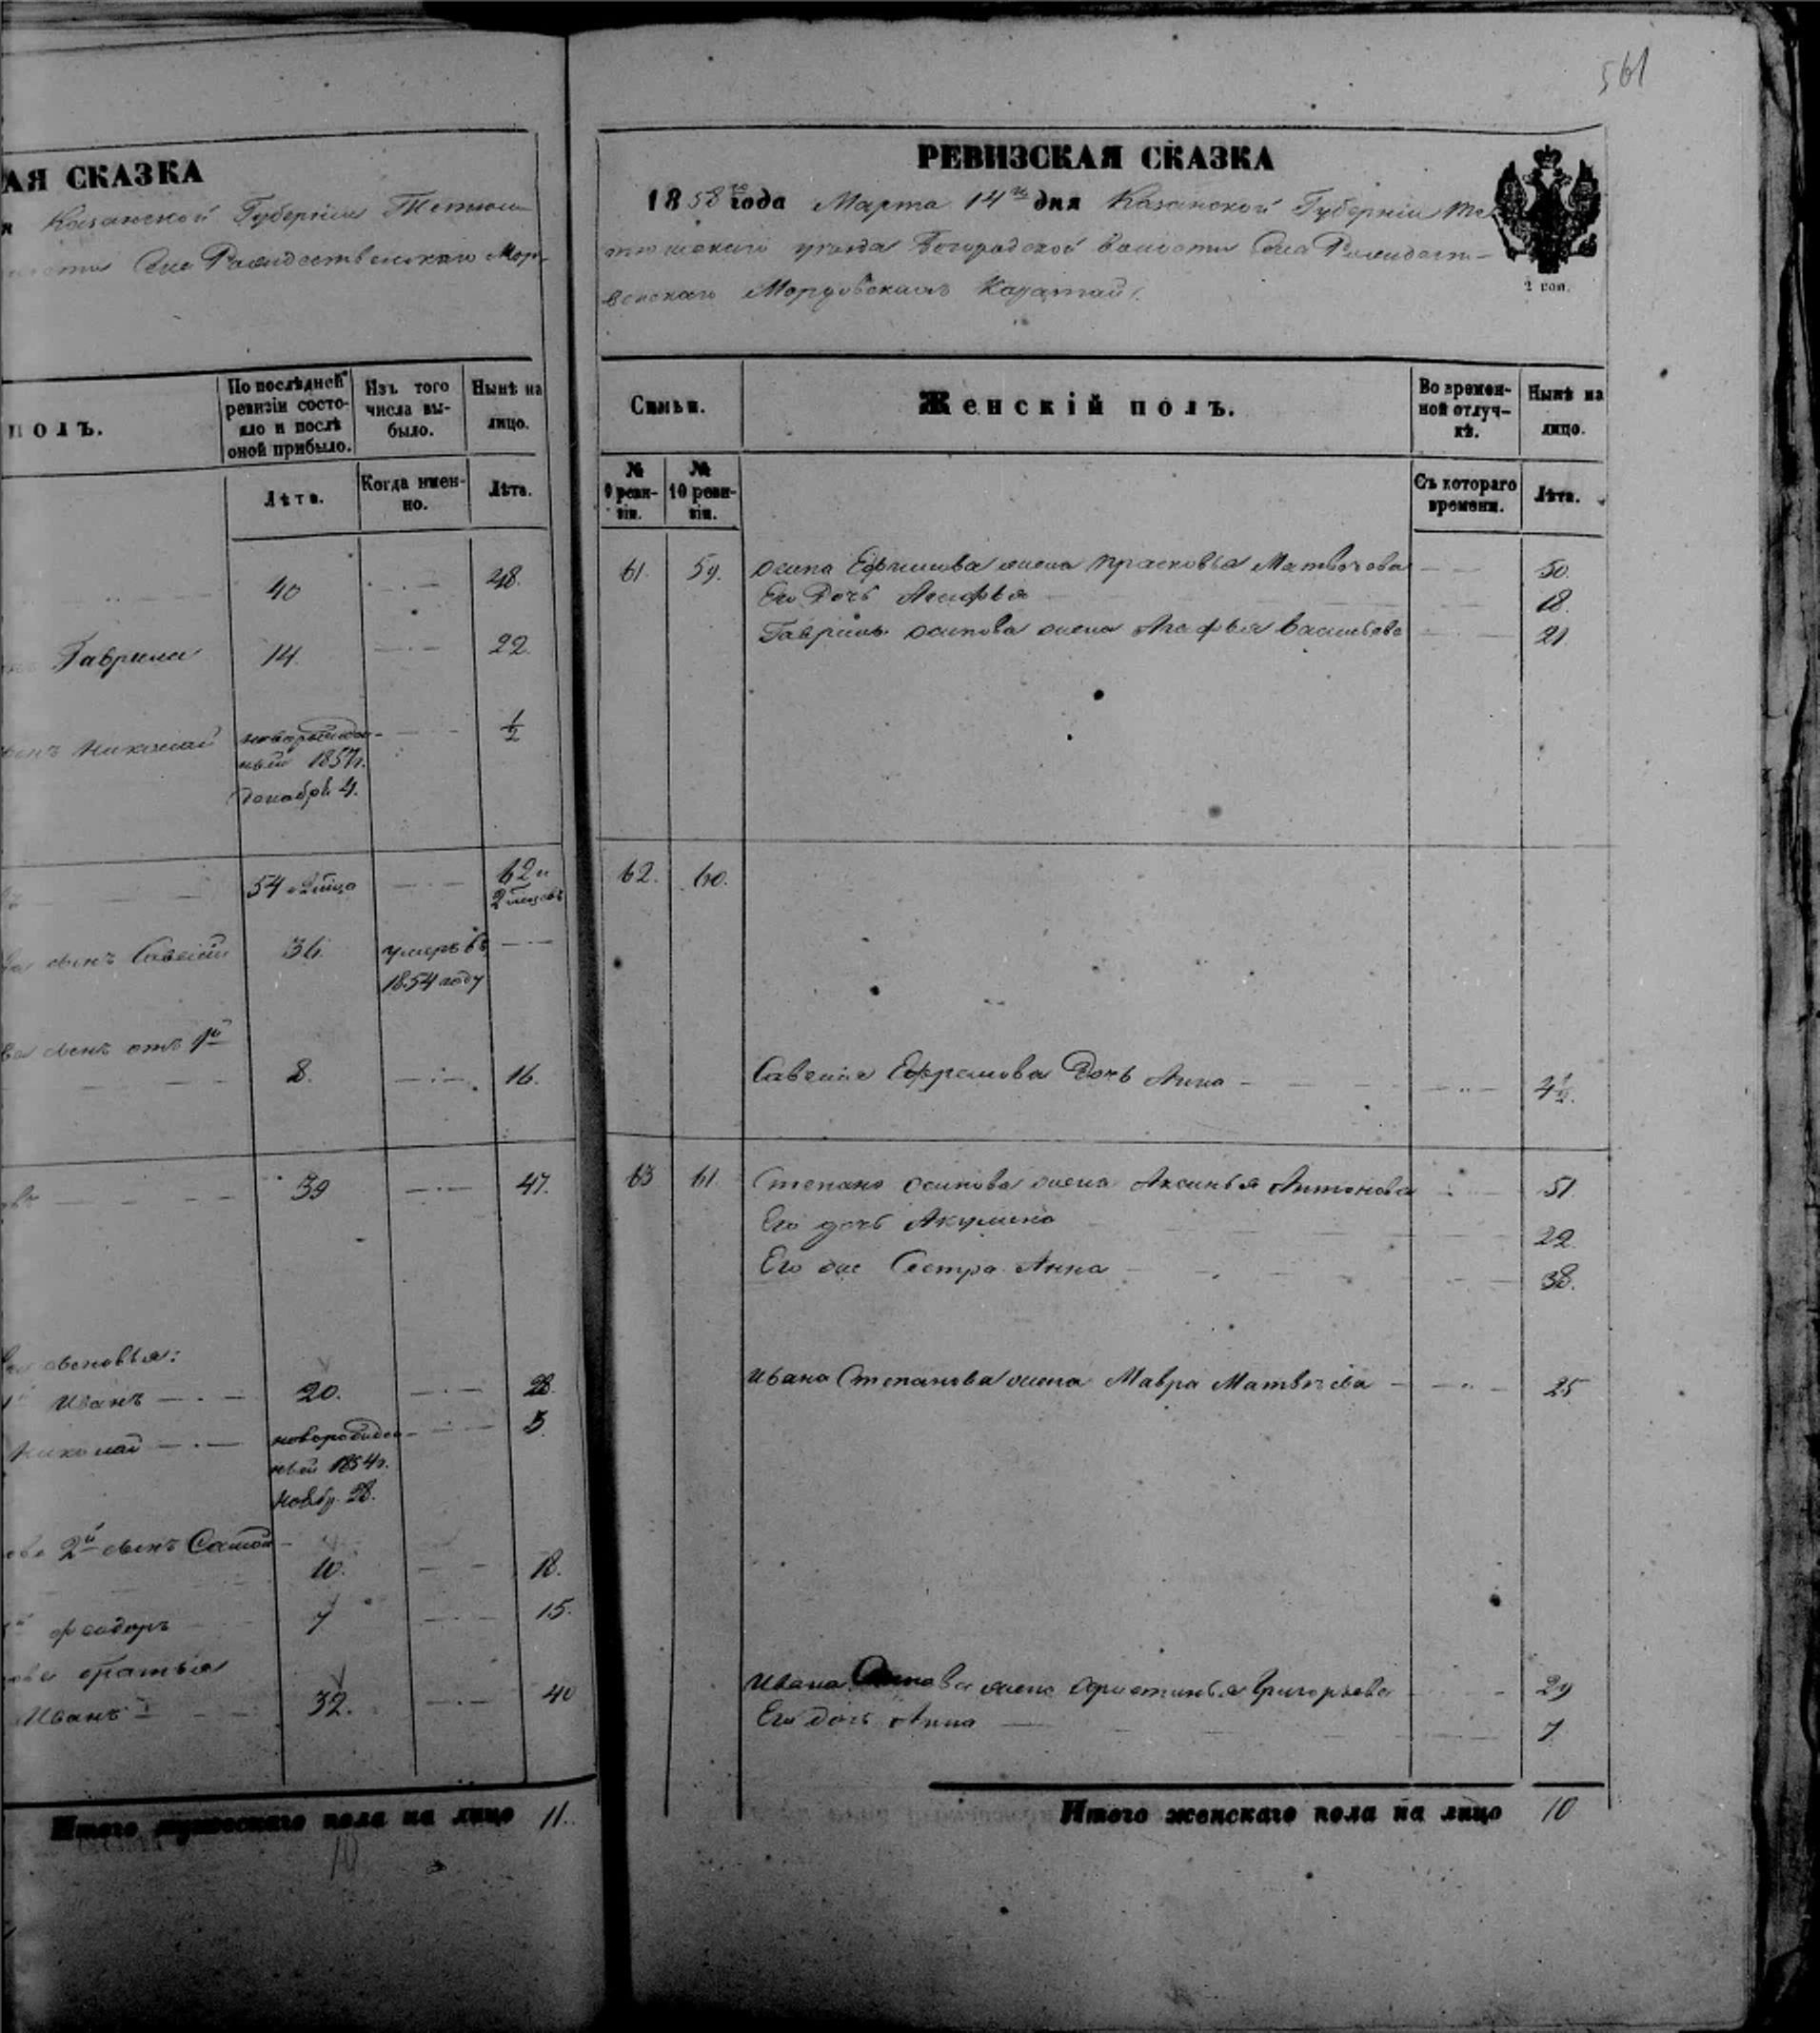 АЯ СКАЗКА
Казанской Губерніи Тетюш
Села Рождественскаго Мор-
ПОЛЪ.
По послѣдней ревизіи состо-
яло и послѣ
оной прибыло.
Изъ того
числа вы-
было.
Нынѣ на
лицо.
Лѣта.
Когда имен-
но.
Лѣта.
40 28.
Гаврила 14. 22
сынъ Николай новорожден-
ный 1857г.
декабря 4. 1/2
54 62 и
2 месяцовъ
сынъ Савелій 36. умеръ въ
1854 году
сынъ отъ 1й
8. 16.
39 47.
сыновья:
Иванъ 20. 28.
Николай новорожден-
ный 1854г.
Ноябр. 28. 3.
2й сынъ
10. 18.
Феодоръ 7 15.
братья
Иванъ 32. 40
Итого мужескаго пола на лицо 11.
10
561
РЕВИЗСКАЯ СКАЗКА
1858го года Марта 14го дня Казанской Губерніи Те-
тюшскаго уѣзда Богородской волости Села Рождест-
венскаго Мордовскихъ Каратай.
2 коп.
Семьи.
Женскій полъ.
Во времен-
ной отлуч-
кѣ.
Нынѣ на
лицо.
№
9 реви-
зіи.
№
10 реви-
зіи.
Съ котораго
времени.
Лѣта.
61. 59. Осипа Ефимова жена Прасковья Матвѣева 50.
Его Дочь 18.
Гаврилы Осипова жена Агафья Васильева 21.
62. 60.
Савелія Ефремова Дочь Анна 4½.
63 61. Степана Осипова жена Аксинья Антонова 51.
Его дочь Акулина 22.
Его же Сестра Анна 38.
Ивана Степанова жена Мавра Матвѣева 25
Ивана жена Христинья Григорьева 29
Его дочь Анна 7
Итого женскаго пола на лицо 10